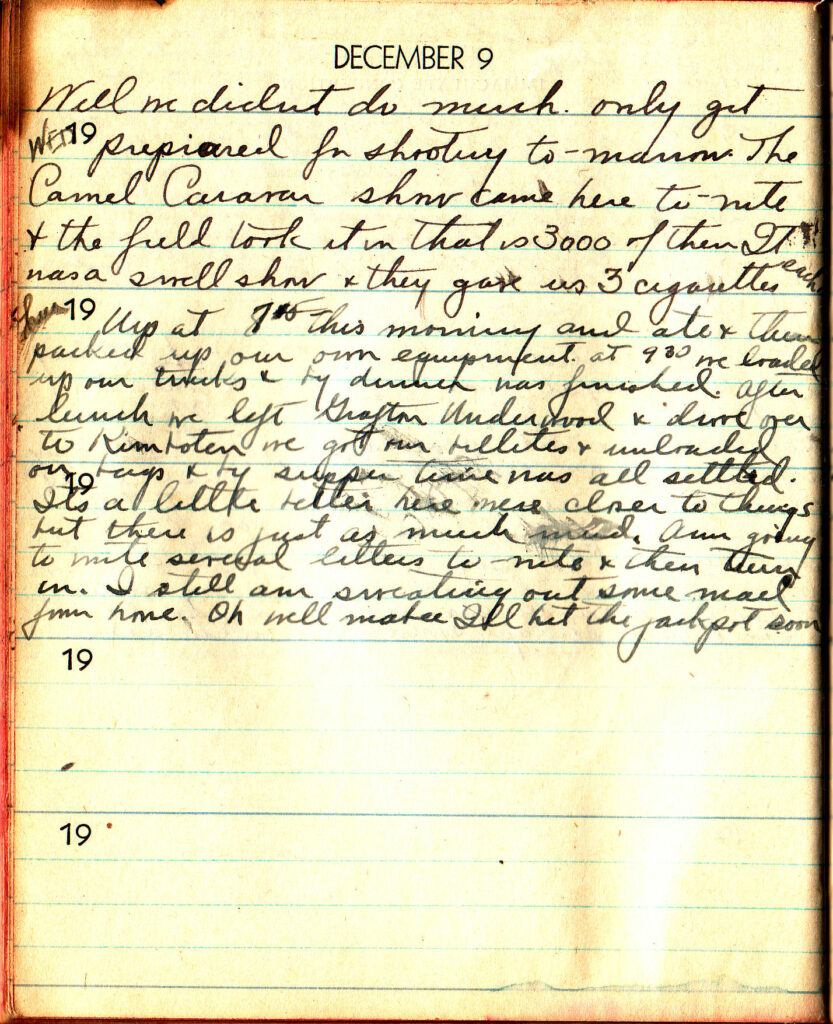 DECEMBER 9
Well we didnt do much. only get
WED 19 prepiared for shooting to-morrow. The
Camel Caravan show came here to-nite
& the field took it in that is 3000 of them It
was a swell show & they gave us 3 cigarettes each
Thurs 19
Up at 7 15 this morning and ate & then
packed up our own equipment. at 9 30 we loaded
up our trucks & by dinner was finished. after
lunch we left Grafton Underwood & drove over
to Kimboten we got our billites & unloaded
our bags & by supper time was all settled.
19
Its a little better here were closer to things
but there is just as much mud. Am going
to write several letters to-nite & then turn
in. I still am sweating out some mail
from home. Oh well mabee Ill hit the jackpot soon
19
19